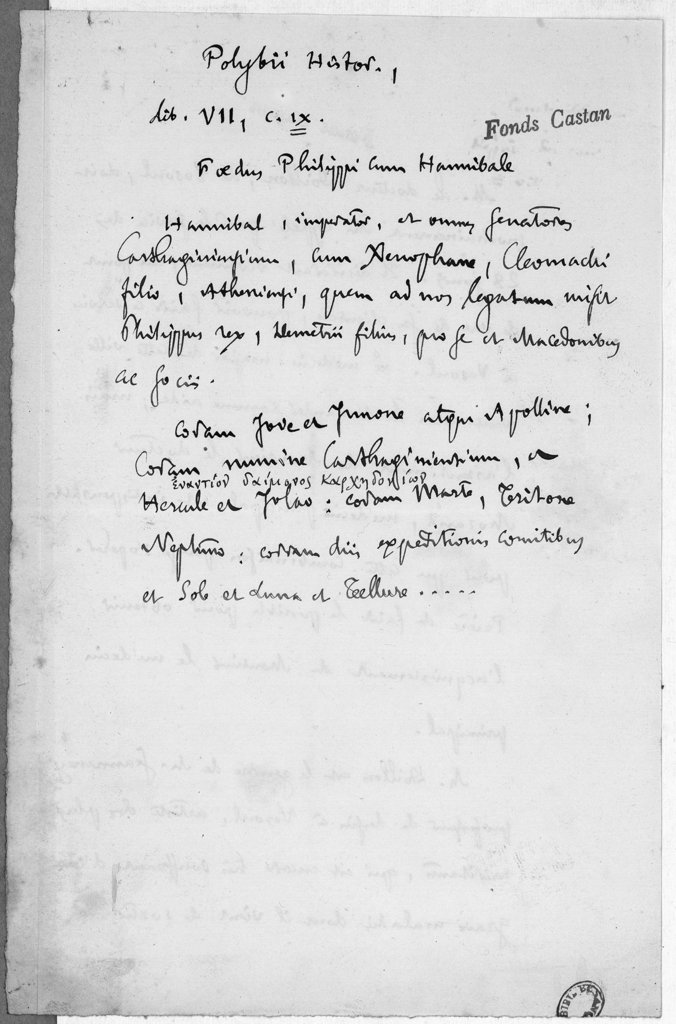 Polybii Histor.,
lib. VII, c. IX.
Fonds Castan
Fœdus Philippi cum Hannibale
Hannibal, imperator, et omnes senatores
Carthaginiensium, cum Xenophane, Cleomachi
filio, Atheniensi, quem ad nos legatum misit
Philippus rex, Demetrii filius, pro se et Macedonibus
ac sociis.
Coram Jove et Junone atque Apolline;
Coram numine Carthaginiensium, et
ἐναντίον δαίμονος Καρχηδονίων
Hercule et Jolao : coram Marte, Tritone
Neptuno : coram diis expeditionis comitibus
et Sole et Luna et Tellure .....